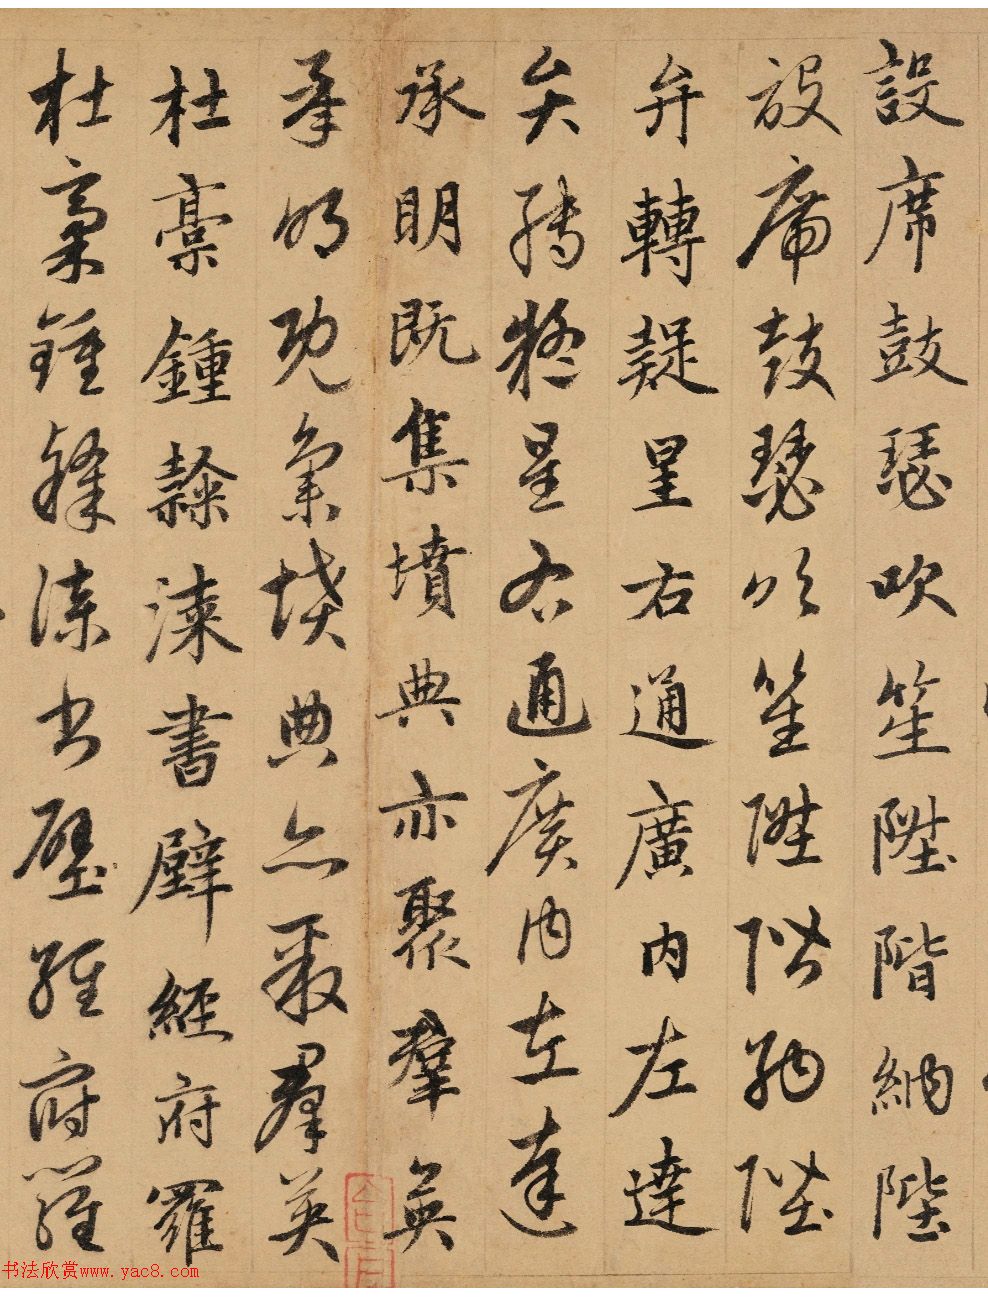 設席鼓瑟吹笙陞階納陛
設席鼓瑟吹笙陞階納陛
弁轉疑星右通廣内左達
弁轉疑星右通廣内左達
承明既集墳典亦聚羣英
承明既集墳典亦聚羣英
杜稾鍾隸漆書壁經府羅
杜稾鍾隸漆書壁經府羅
书法欣赏www.yac8.com